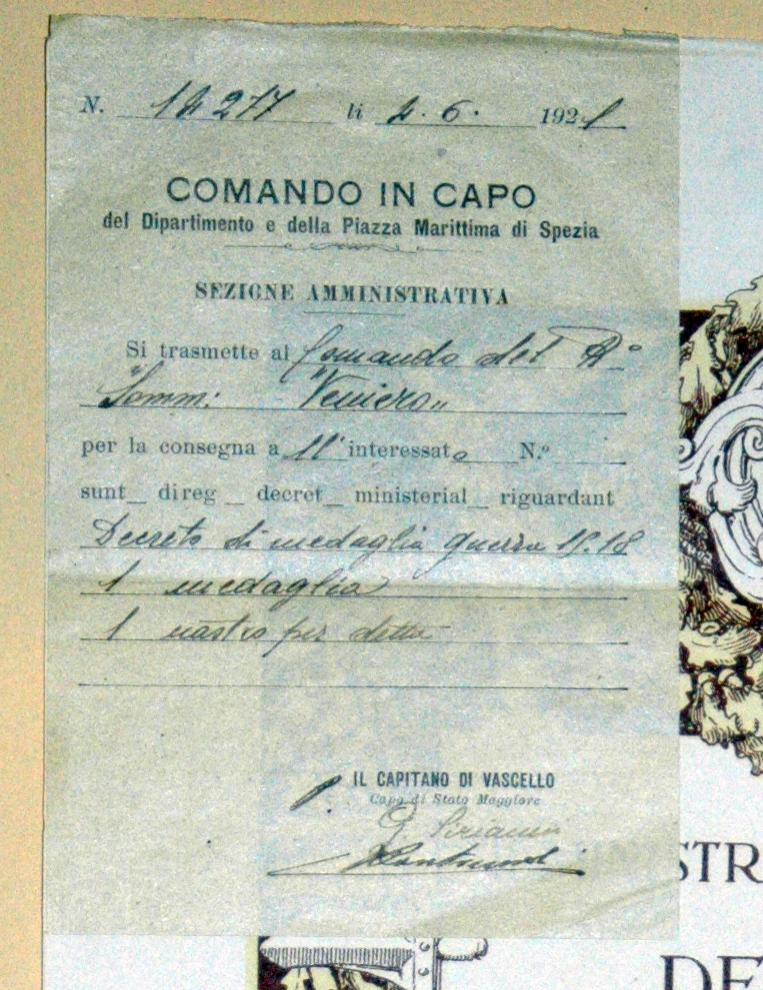 N. 14277 li 4.6. 1921
COMANDO IN CAPO
del Dipartimento e della Piazza Marittima di Spezia
SEZIONE AMMINISTRATIVA
Si trasmette al Comando del R°
"Somm: "Veniero"
per la consegna a ll' interessato N.°
sunt direg decret ministerial riguardant
Decreto di medaglia guerra 15.18
1 medaglia
1 nastro per detta
IL CAPITANO DI VASCELLO
Capo di Stato Maggiore
G. Sirianni
STR
DE